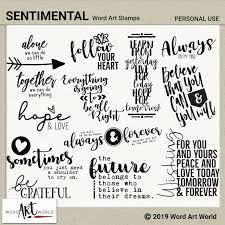 SENTIMENTAL Word Art Stamps
PERSONAL USE
alone
we can do
so little
together
we can do
everything
follow
YOUR
HEART
Everything
is going
to be
all Right
LEARN
FROM
yesterday
live
FOR
today
HOPE
FOR
Always
in my
Believe
that you
Can &
You will
hope
& LOVE
always
&
forever
sometimes
you just need
a shoulder
to cry on.
the
future
belongs to
those who
believe in
their dreams.
Wishing
YOU
FOR YOU
AND YOURS
PEACE AND
LOVE TODAY
TOMORROW
& FOREVER
be
GRATEFUL
WORD
Art
WORLD
© 2019 Word Art World